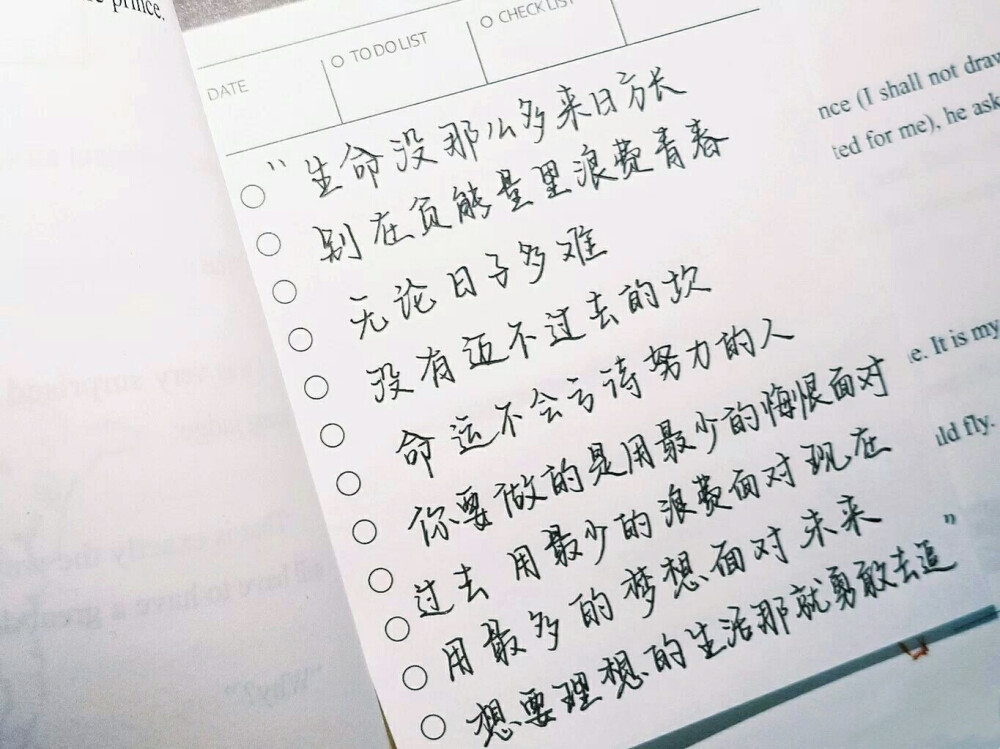 prince.
DATE
TO DO LIST
CHECK LIST
"生命没那么多来日方长
别在负能量里浪费青春
无论日子多难
没有迈不过去的坎
命运不会亏待努力的人
你要做的是用最少的悔恨面对
过去 用最少的浪费面对现在
用最多的梦想面对未来
想要理想的生活那就勇敢去追"
nce (I shall not draw
ted for me), he ask
e. It is my
ild fly.